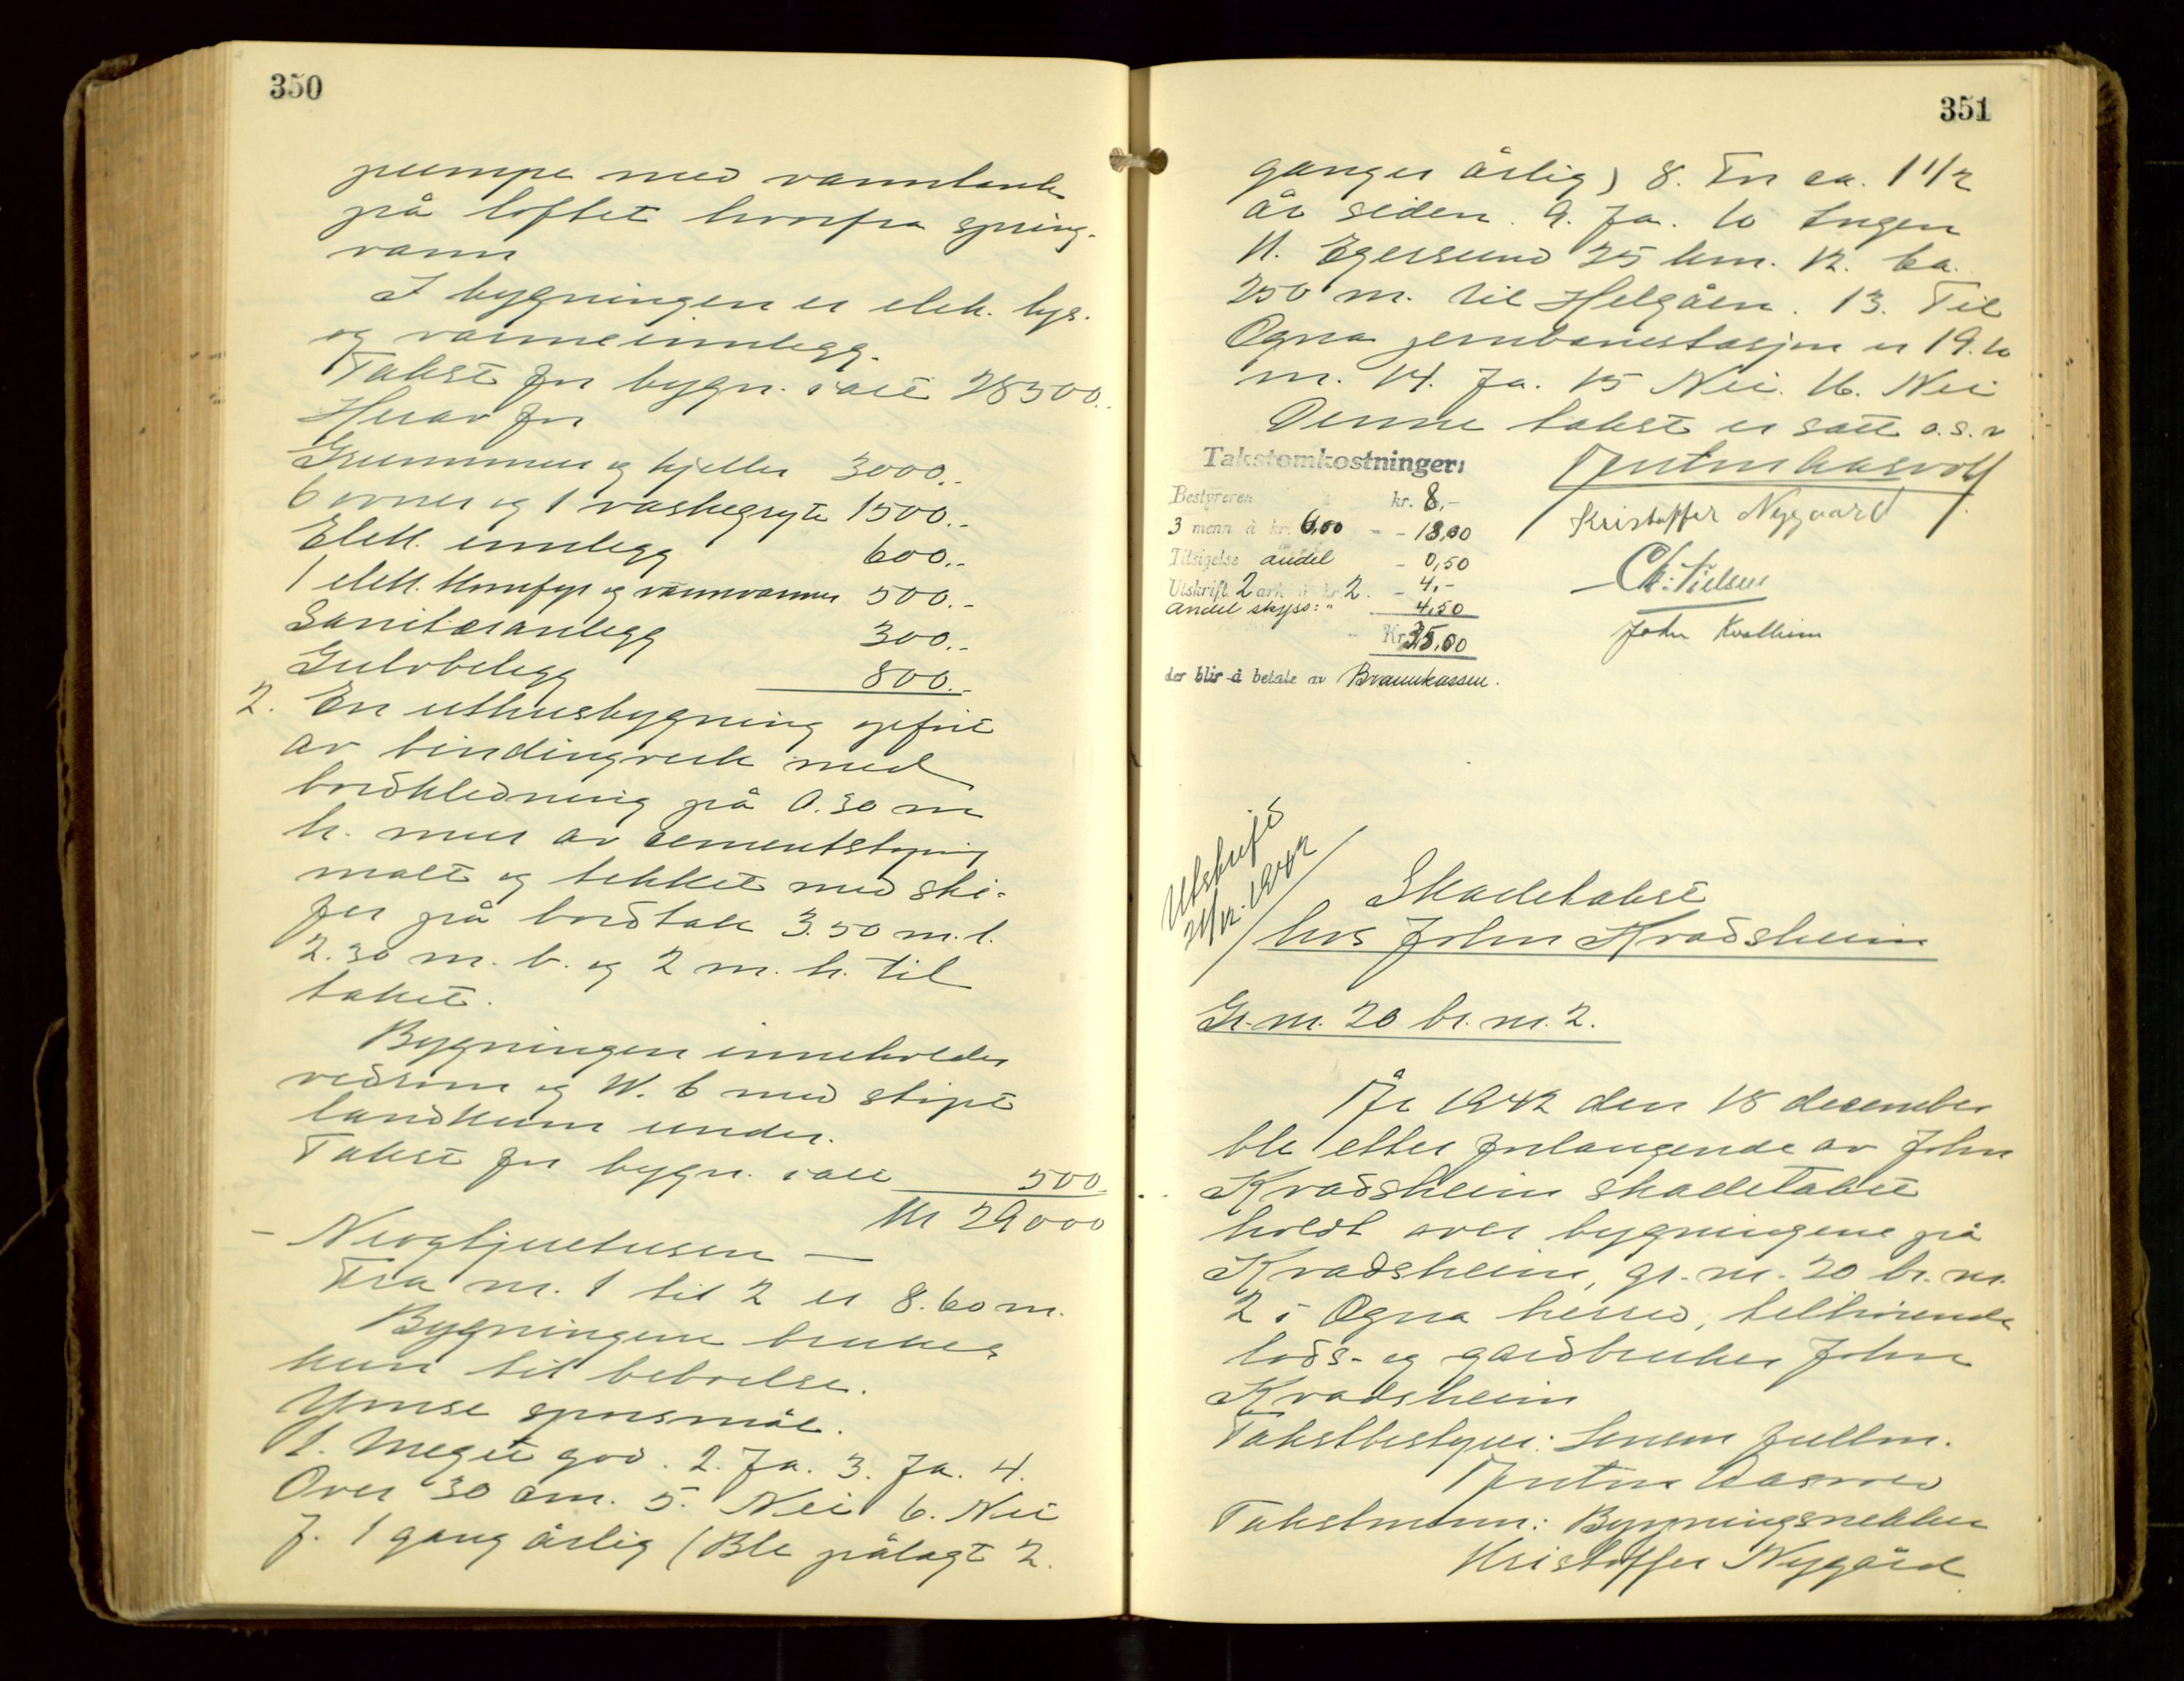 350
pumpe med vanntank
på loftet hvorfra spring-
vann
I bygningen er elek. lys-
og varmeinnlegg.
Takst for bygn. i alt 28500.-
Herav for
Grunnmur og kjeller 3000.-
6 ovner og 1 vaskegryte 1500.-
Elek. innlegg 600.-
1 elek. komfyr og vannvarmer 500.-
Sanitæranlegg 300.-
Gulvbelegg 800.-
2. En uthusbygning opført
av bindingverk med
bordkledning på 0.30 m
h. mur av cementstøping
malt og tekket med ski-
fer på bordtak 3.50 m. l.
2.30 m. b. og 2 m. h. til
taket.
Bygningen inneholder
vedrom og W. C med støpt
landkum under.
Takst for bygn. i alt 500
Kr 29000
- Niogtjuetusen -
Fra nr. 1 til 2 er 8.60 m.
Bygningene brukes
kun til beboelse.
Ymse spørsmål.
1. Meget god. 2. Ja. 3. Ja. 4.
Over 30 cm. 5. Nei 6. Nei
7. 1 gang årlig (Ble pålagt 2.
351
ganger årlig) 8. For ca. 1 1/2
år siden. 9. Ja. 10 Ingen
11. Egersund 25 km. 12. Ca.
250 m. til Helgåen. 13. Til
Ogna jernbanestasjon er 19.10
m. 14. Ja. 15 Nei. 16. Nei
Denne takst er satt o.s.v
Takstomkostninger:
Bestyreren kr. 8,-
3 menn à kr. 6,00 - - 18,00
Tilsigelse andel - 0,50
Utskrift 2 ark à kr. 2. - 4,-
andel skyss: " 4,50
Kr. 35,00
der blir å betale av Brannkassen.
Kristoffer Nygaard
Chr. Nielsen
John Kvalheim
Utskrift
21/12-1942
Skadetakst
hos John Kvadsheim
Gr. nr. 20 br. nr. 2.
År 1942 den 18 december
ble etter forlangende av John
Kvadsheim skadetakst
holdt over bygningene på
Kvadsheim, gr. nr. 20 br. nr.
2 i Ogna herred, tilhørende
lods- og gardbruker John
Kvadsheim
Takstbestyrer: Lensm fullm.
Takstmenn: Bygningsnekker
Kristoffer Nygård